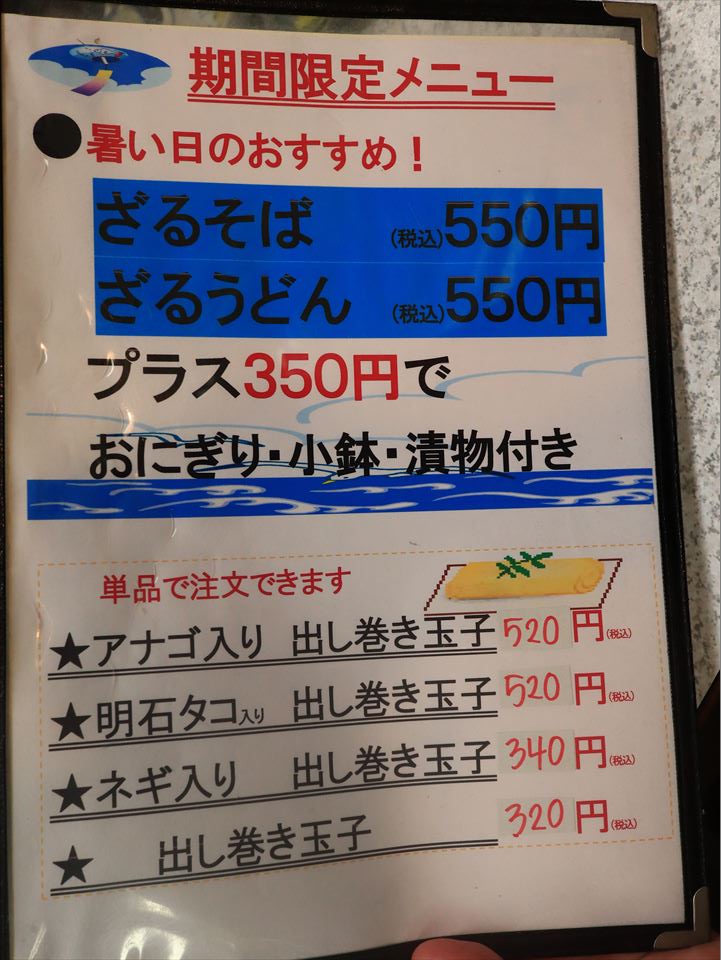 期間限定メニュー
●暑い日のおすすめ！
ざるそば (税込)550円
ざるうどん (税込)550円
プラス350円で
おにぎり・小鉢・漬物付き
単品で注文できます
★アナゴ入り 出し巻き玉子 520円(税込)
★明石タコ入り 出し巻き玉子 520円(税込)
★ネギ入り 出し巻き玉子 340円(税込)
★ 出し巻き玉子 320円(税込)